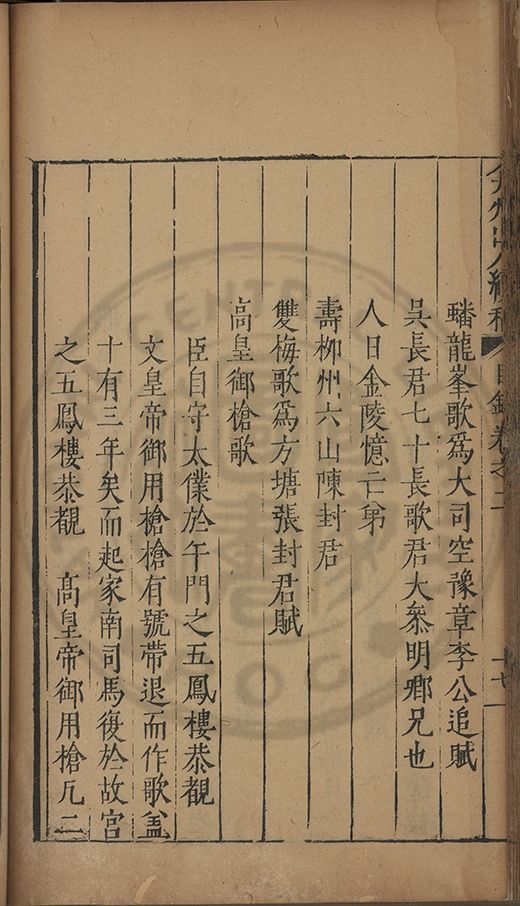 弇州山人續稿 目錄卷之二 十七
蟠龍峯歌爲大司空豫章李公追賦
吳長君七十長歌君大叅明鄉兄也
人日金陵憶亡弟
壽柳州六山陳封君
雙梅歌爲方塘張封君賦
高皇御槍歌
臣自守太僕於午門之五鳳樓恭覩
文皇帝御用槍槍有號帶退而作歌盖
十有三年矣而起家南司馬復於故宮
之五鳳樓恭覩 高皇帝御用槍凢二